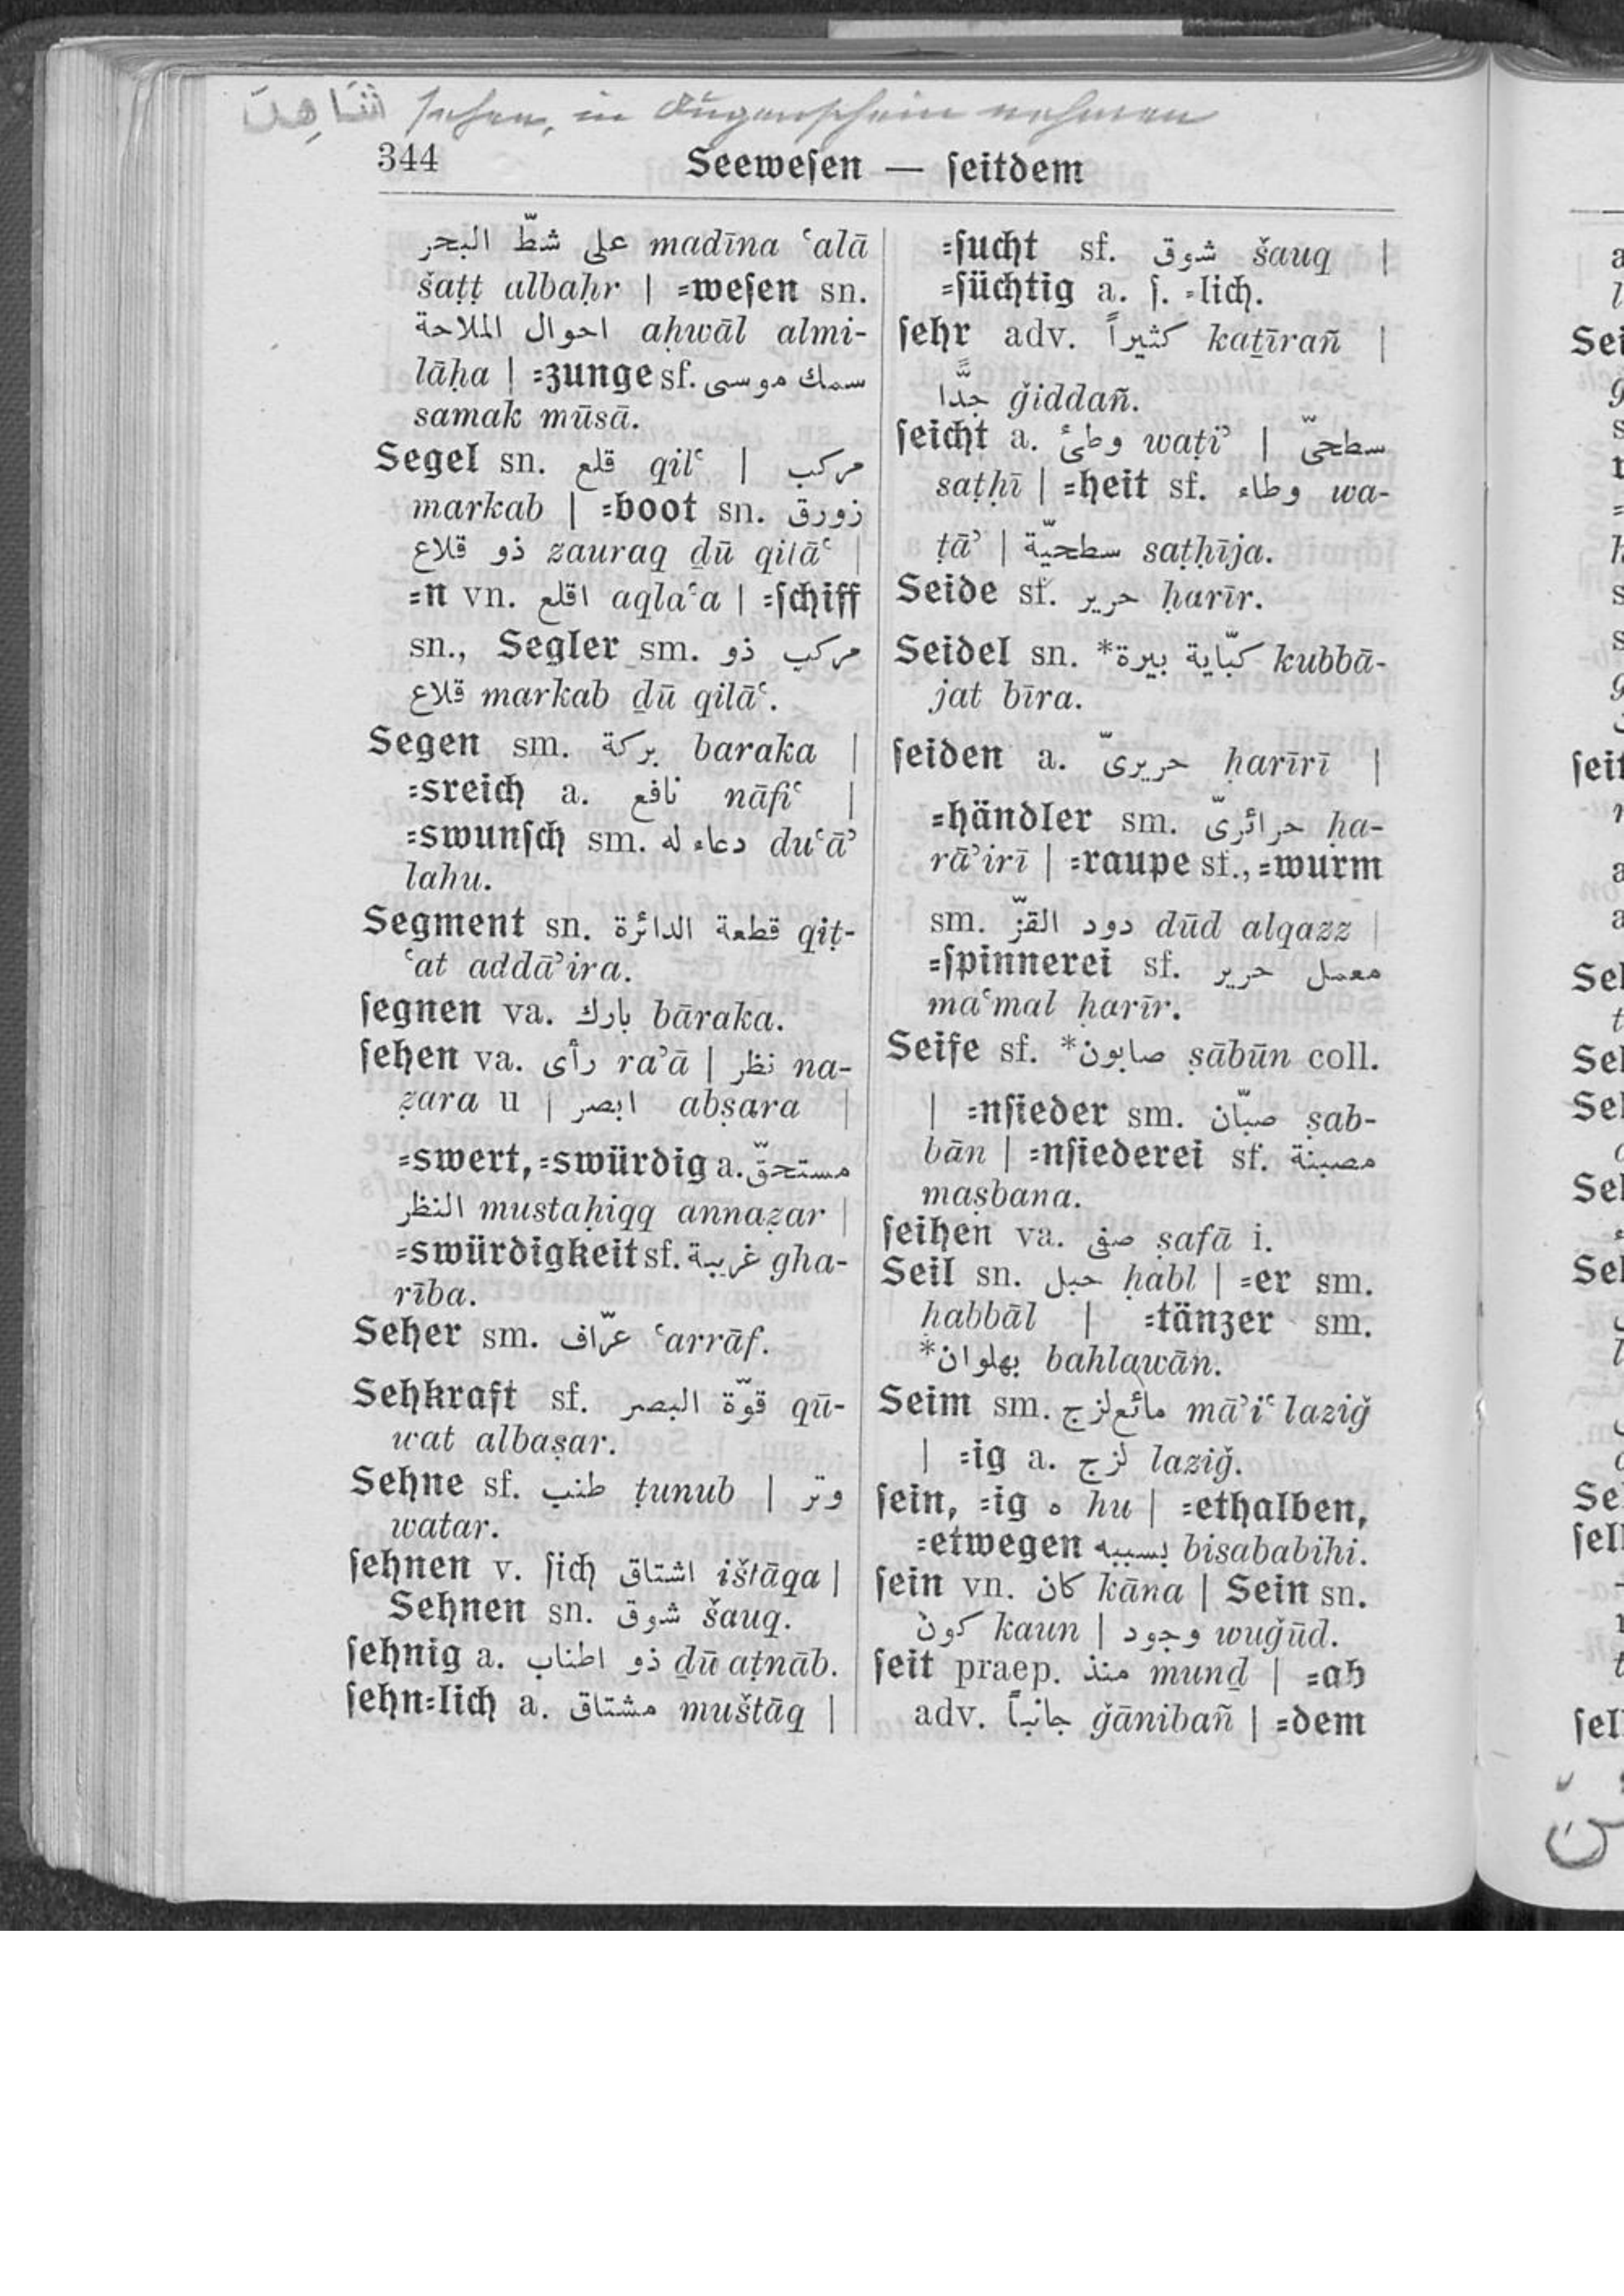 شَاهِدَ sehen, in Augenschein nehmen
344 Seeweſen — ſeitdem
على شطّ البحر madīna ʿalā
šaṭṭ albaḥr | =weſen sn.
احوال الملاحة aḥwāl almi-
lāḥa | =zunge sf. سمك موسى
samak mūsā.
Segel sn. قلع qilʿ | مركب
markab | =boot sn. زورق
ذو قلاع zauraq ḏū qilāʿ |
=n vn. اقلع aqlaʿa | =ſchiff
sn., Segler sm. مركب ذو
قلاع markab ḏū qilāʿ.
Segen sm. بركة baraka |
=sreich a. نافع nāfiʿ |
=swunſch sm. دعاء له duʿāʾ
lahu.
Segment sn. قطعة الدائرة qiṭ-
ʿat addāʾira.
ſegnen va. بارك bāraka.
ſehen va. رأى raʾā | نظر na-
ẓara u | ابصر abṣara |
=swert, =swürdig a. مستحقّ
النظر mustaḥiqq annaẓar |
=swürdigkeit sf. غريبة gha-
rība.
Seher sm. عرّاف ʿarrāf.
Sehkraft sf. قوّة البصر qū-
wat albaṣar.
Sehne sf. طنب ṭunub | وتر
watar.
ſehnen v. ſich اشتاق ištāqa |
Sehnen sn. شوق šauq.
ſehnig a. ذو اطناب ḏū aṭnāb.
ſehn=lich a. مشتاق muštāq |
=ſucht sf. شوق šauq |
=ſüchtig a. ſ. =lich.
ſehr adv. كثيراً kaṯīrañ |
جدًّا ǧiddañ.
ſeicht a. وطئ waṭiʾ | سطحىّ
saṭḥī | =heit sf. وطاء wa-
ṭāʾ | سطحيّة saṭḥīja.
Seide sf. حرير ḥarīr.
Seidel sn. *كبّاية بيرة kubbā-
jat bīra.
ſeiden a. حريرىّ ḥarīrī |
=händler sm. حرائرىّ ḥa-
rāʾirī | =raupe sf., =wurm
sm. دود القزّ dūd alqazz |
=ſpinnerei sf. معمل حرير
maʿmal ḥarīr.
Seife sf. *صابون ṣābūn coll.
| =nſieder sm. صبّان ṣab-
bān | =nſiederei sf. مصبنة
maṣbana.
ſeihen va. صفى ṣafā i.
Seil sn. حبل ḥabl | =er sm.
ḥabbāl | =tänzer sm.
*بهلوان bahlawān.
Seim sm. مائع لزج māʾiʿ laziǧ
| =ig a. لزج laziǧ.
ſein, =ig ه hu | =ethalben,
=etwegen بسببه bisababihi.
ſein vn. كان kāna | Sein sn.
كون kaun | وجود wuǧūd.
ſeit praep. منذ munḏ | =ab
adv. جانباً ǧānibañ | =dem